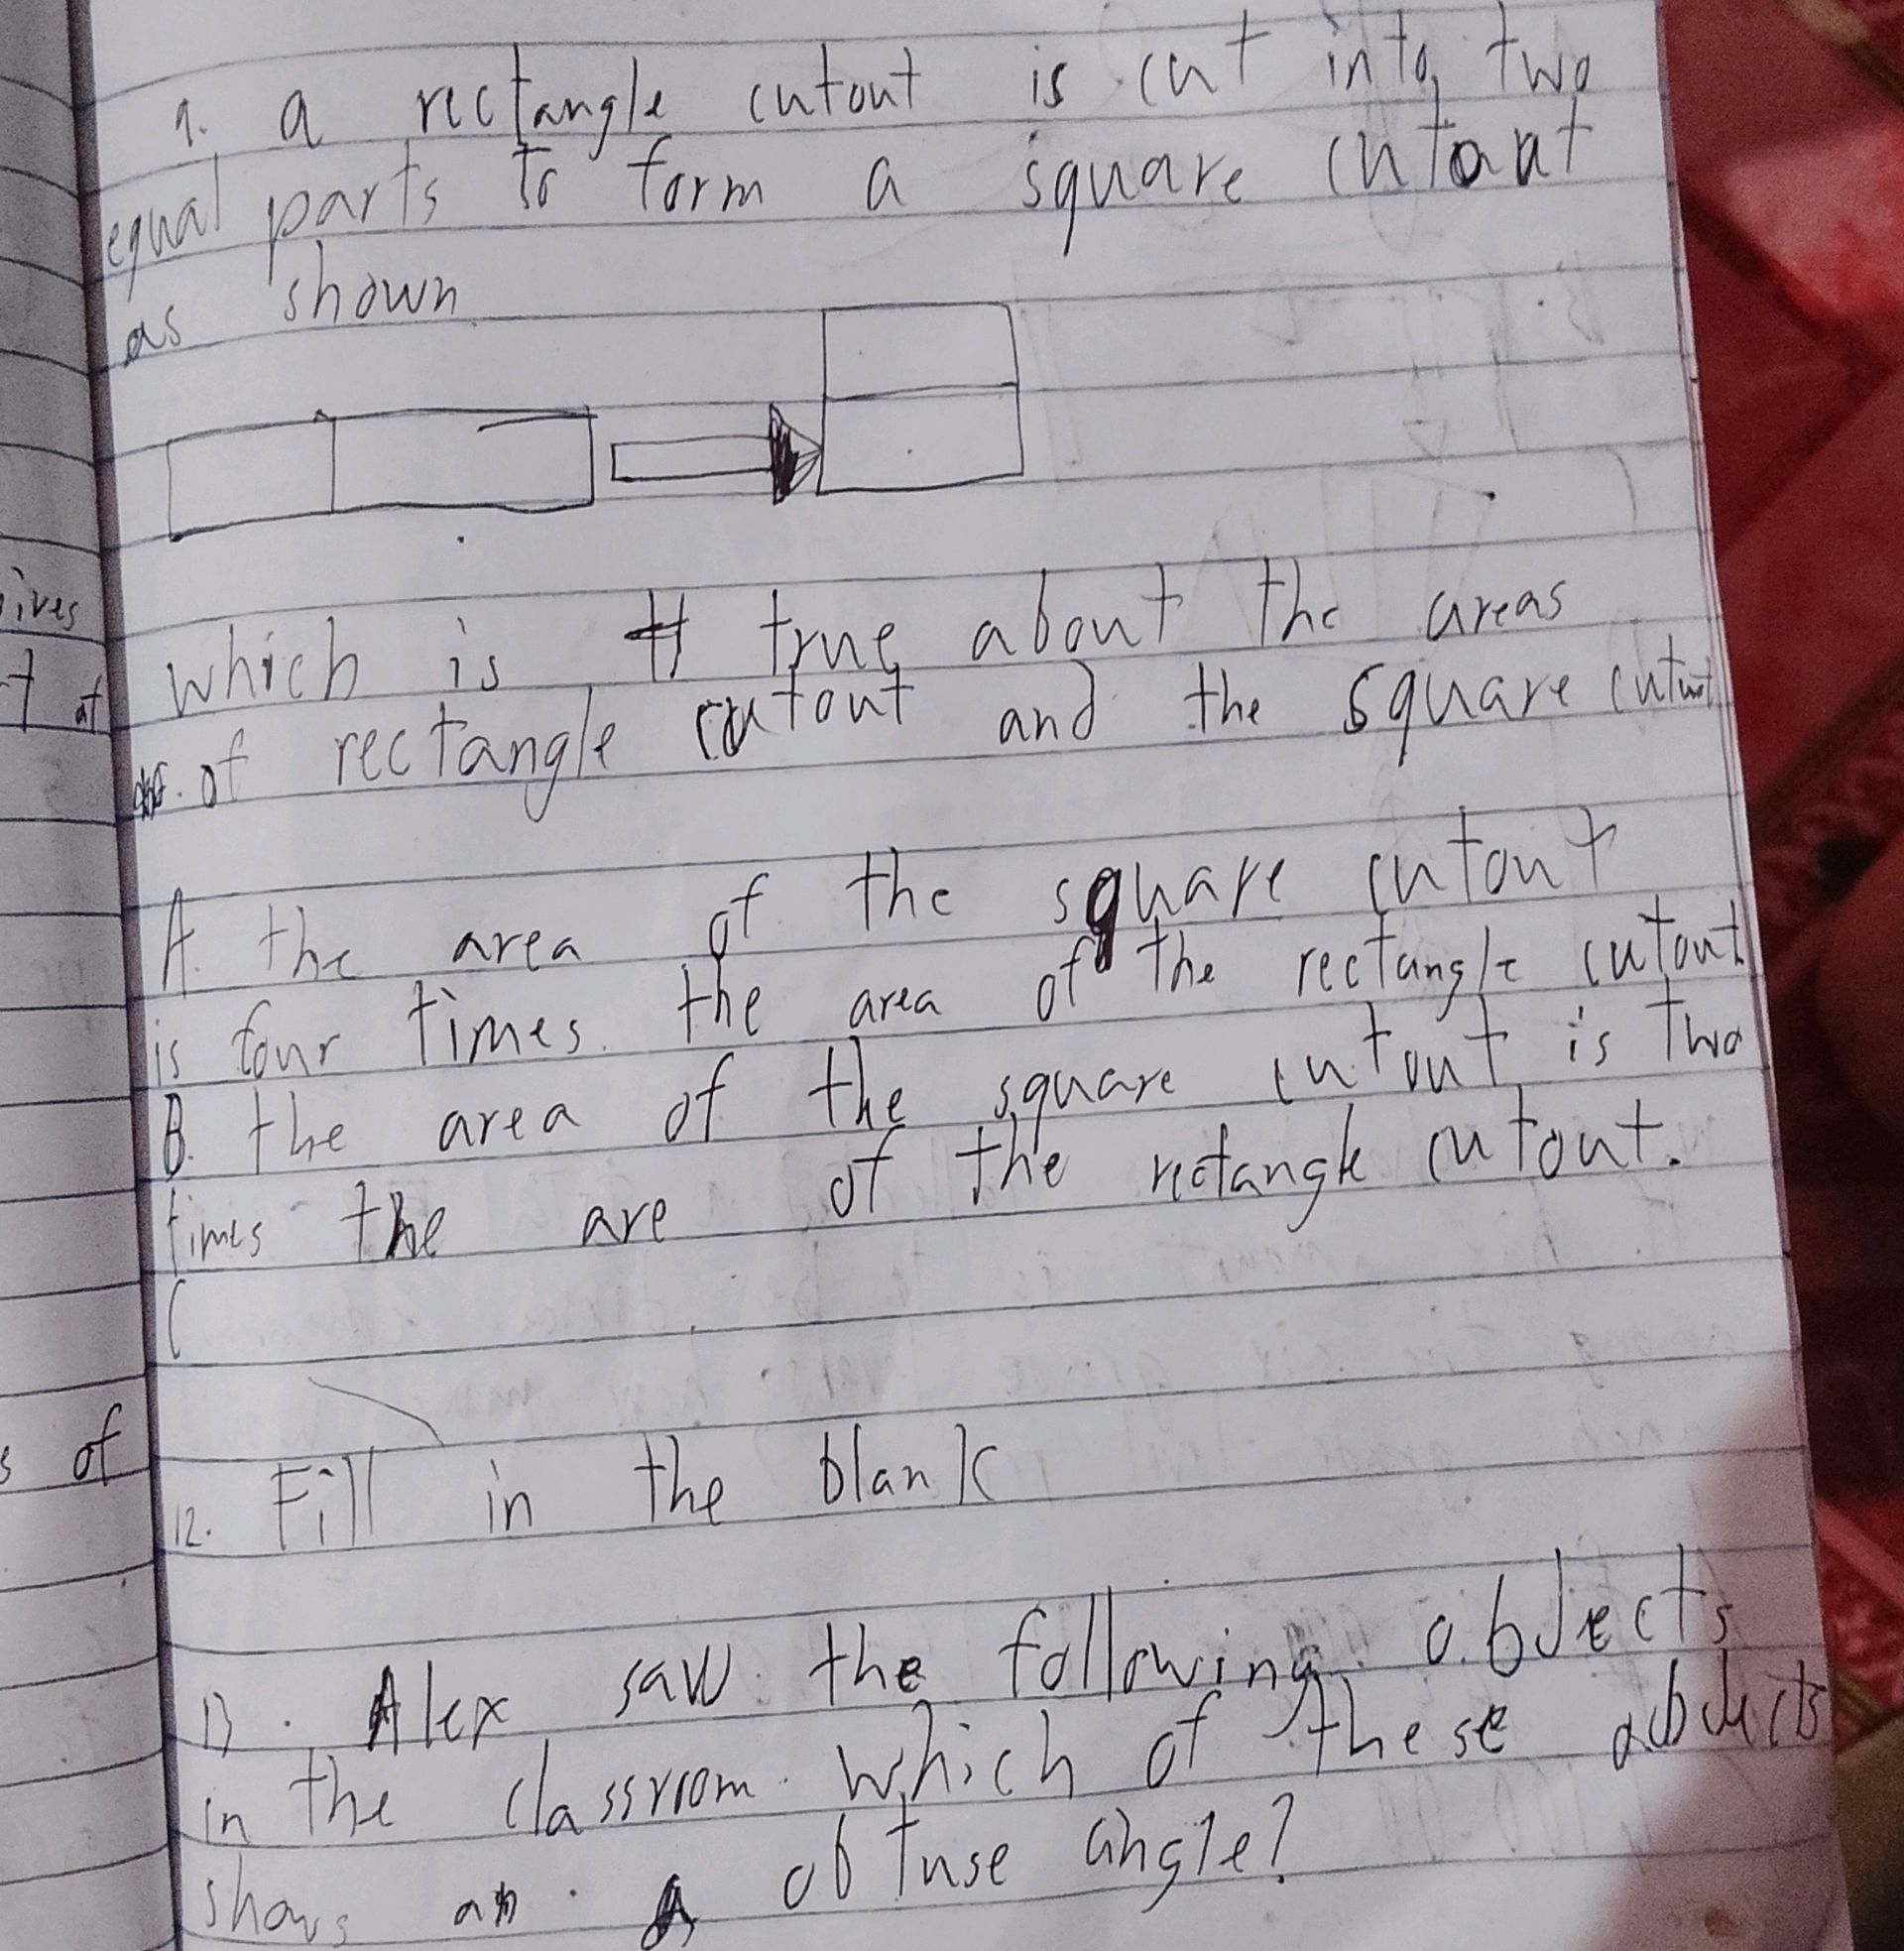 9. a rectangle cutout is cut into two
equal parts to form a square cutout
as shown
ives
which is true about the areas
t at
of rectangle cutout and the square cutout
A. the area of the square cutout
is four times the area of the rectangle cutout
B. the area of the square cutout is two
times the are of the rectangle cutout.
C
s of
12. Fill in the blank
13. Alex saw the following objects
in the classroom. which of these objects
shows an obtuse angle?